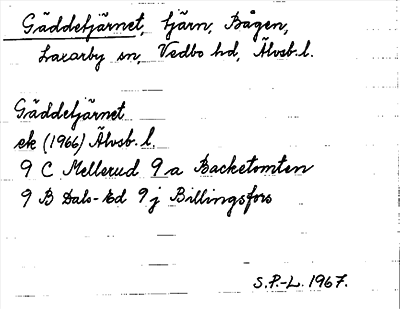 Gäddetjärnet, tjärn, Bågen,
Laxarby sn, Vedbo hd, Älvsb. l.
Gäddetjärnet
ek (1966) Älvsb. l.
9 C Mellerud 9 a Backetomten
9 B Dals-Ed 9 j Billingsfors
S.P.-L. 1967.